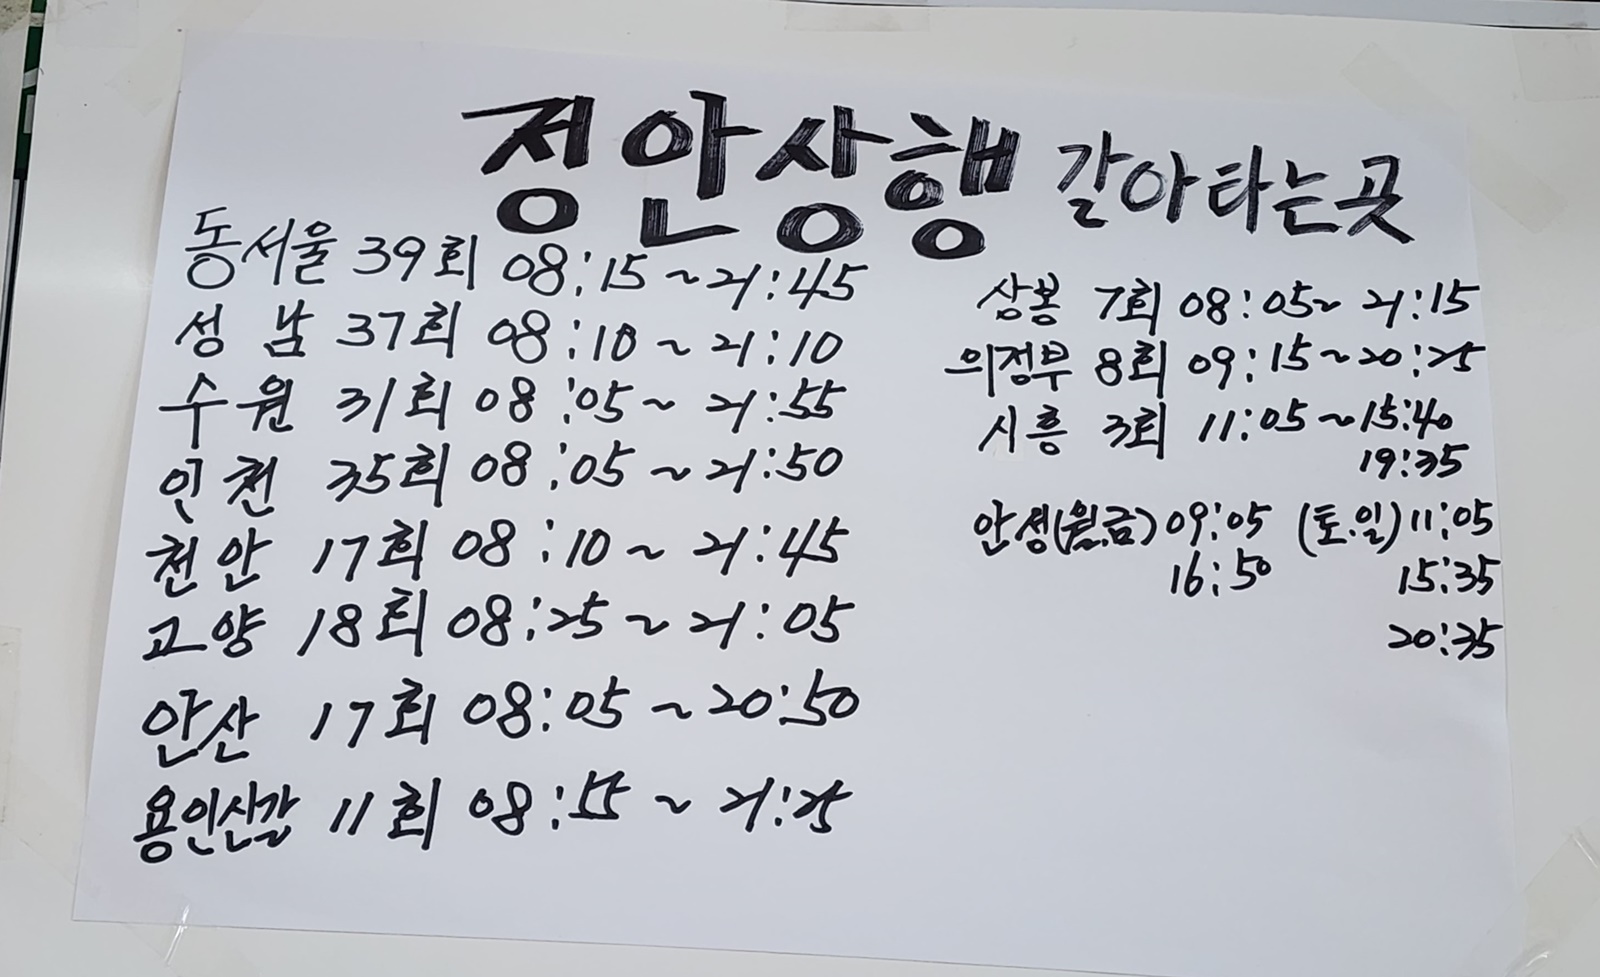 정안상행 갈아타는곳
동서울 39회 08:15~21:45
성남 37회 08:10~21:10
수원 31회 08:05~21:55
인천 35회 08:05~21:50
천안 17회 08:10~21:45
고양 18회 08:25~21:05
안산 17회 08:05~20:50
용인신갈 11회 08:55~21:25
삼봉 7회 08:05~21:15
의정부 8회 09:15~20:25
시흥 3회 11:05~15:40
19:35
안성(월.금) 09:05 (토.일) 11:05
16:50 15:35
20:35